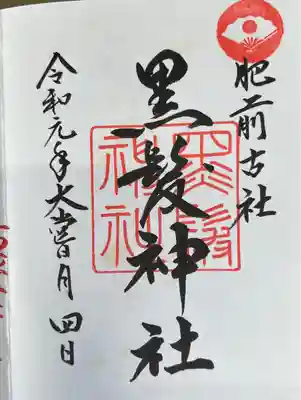 肥前古社
黒髪神社
黒髪
神社
令和元年大嘗月四日